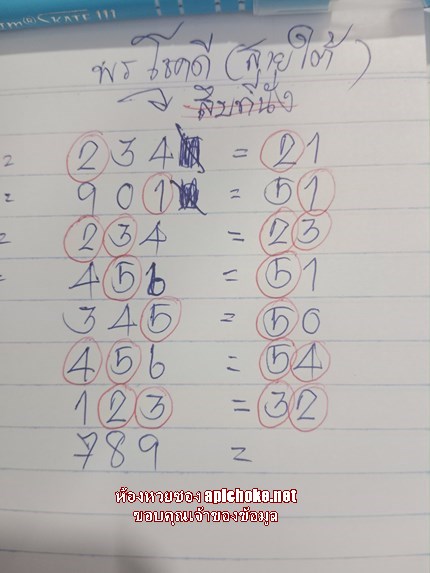 KATE III
พรโชคดี (สายใต้)
สืบทีนัง
= 234 = 21
= 901 = 51
= 234 = 23
= 456 = 51
345 = 50
456 = 54
123 = 32
789 =
ห้องหวยซอง apichoke.net
ขอบคุณเจ้าของข้อมูล